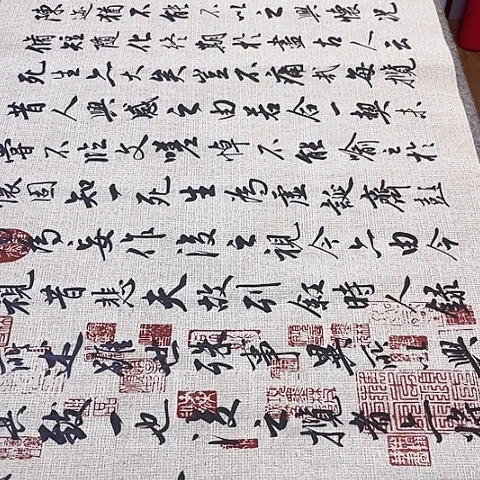 陳迹猶不能不以之興懷况
脩短隨化終期於盡古人云
死生亦大矣豈不痛哉每攬
昔人興感之由若合一契未
嘗不臨文嗟悼不能喻之於
懷固知一死生為虛誕齊彭
為妄作後之視今亦由今
視昔悲夫故列叙時人録
所述雖世殊事異所以興
其致一也後之攬者亦將